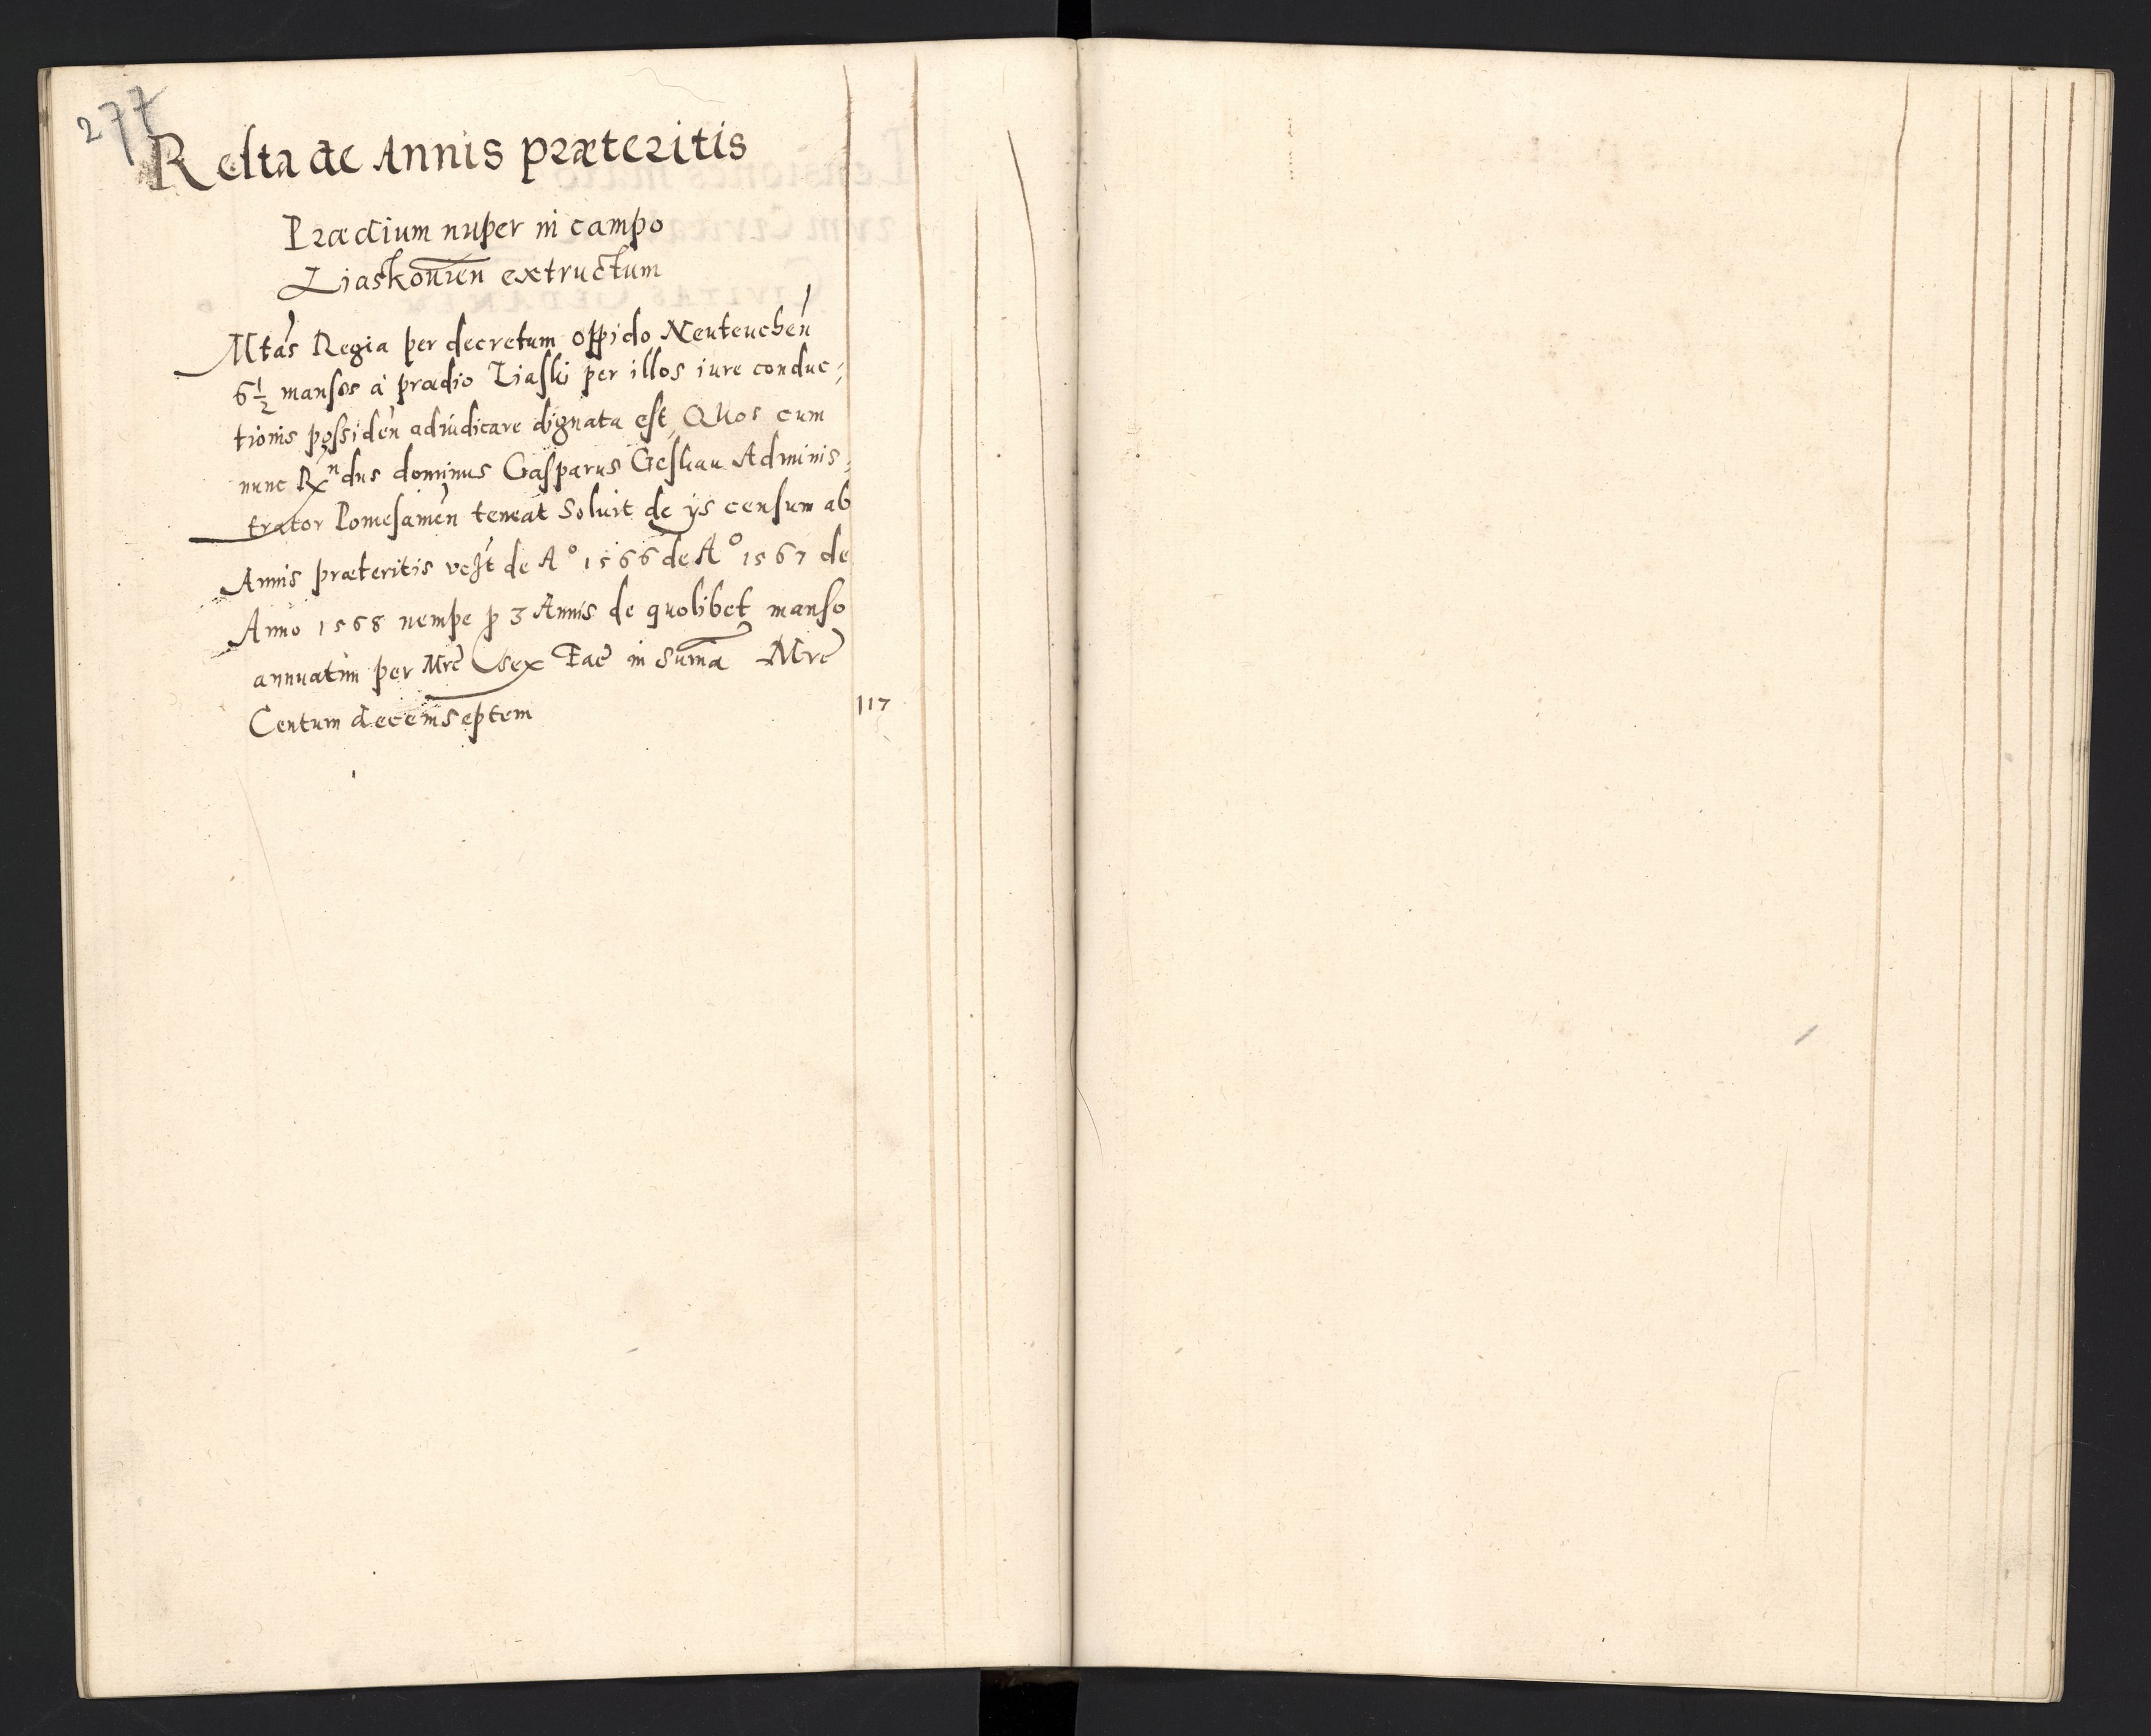 277
Resta de Annis præteritis
Prædium nuper in campo
Liaskouien extructum
Mtas Regia per decretum oppido Neuteuchen
6 1/2 mansos à prædio Liaski per illos iure conduc,
tionis possiden adiudicare dignata est, Quos cum
nunc Rndus dominus Gasparus Geskau Adminis,
trator Pomesamen teneat Soluit de ijs censum ab
Annis præteritis de A° 1566 de A° 1567 de
Anno 1568 nempe p 3 Annis de quolibet manso
annuatim per Mrc sex Fac in Suma Mrc
Centum decemseptem 117